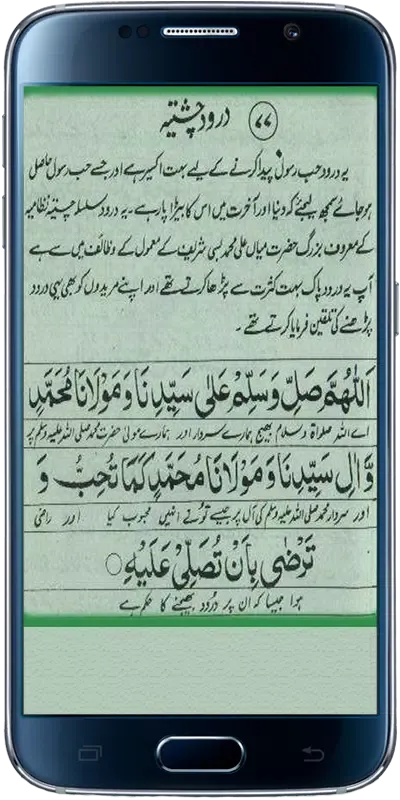 ۷۷ درود چشتیہ
یہ درود حب رسولؐ پیدا کرنے کے لیے بہت اکسیر ہے اور جسے حب رسول حاصل
ہو جائے سمجھ لیجئے کہ دنیا اور آخرت میں اس کا بیڑا پار ہے۔ یہ درود سلسلہ چشتیہ نظامیہ
کے معروف بزرگ حضرت میاں علی محمد بسی شریف کے معمول کے وظائف میں سے ہے
آپ یہ درود پاک بہت کثرت سے پڑھا کرتے تھے اور اپنے مریدوں کو بھی یہی درود
پڑھنے کی تلقین فرمایا کرتے تھے۔
اَللّٰهُمَّ صَلِّ وَسَلِّمْ عَلٰى سَيِّدِنَا وَمَوْلَانَا مُحَمَّدٍ
اے اللہ صلواۃ و سلام بھیج ہمارے سردار اور ہمارے مولیٰ حضرت محمد صلی اللہ علیہ وسلم پر
وَّاٰلِ سَيِّدِنَا وَمَوْلَانَا مُحَمَّدٍ كَمَا تُحِبُّ وَ
اور سردار محمد صلی اللہ علیہ وسلم کی آل پر جیسے تو نے انہیں محبوب کیا اور راضی
تَرْضٰى بِاَنْ تُصَلِّىَ عَلَيْهِ ○
ہوا جیسا کہ ان پر درود بھیجنے کا حکم ہے